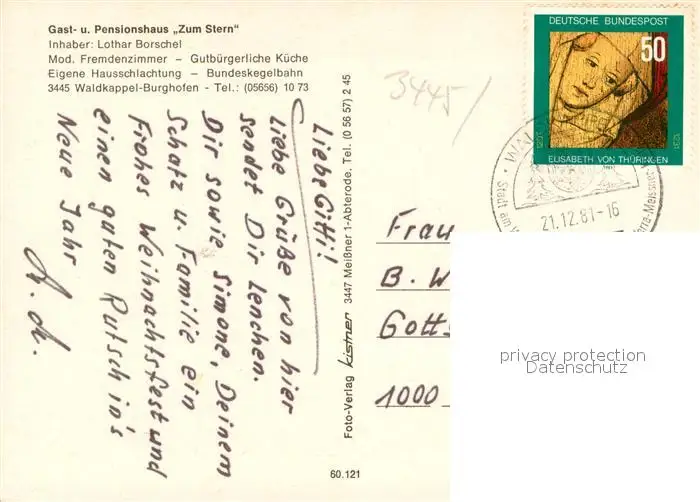 Gast- u. Pensionshaus „Zum Stern“
Inhaber: Lothar Borschel
Mod. Fremdenzimmer – Gutbürgerliche Küche
Eigene Hausschlachtung – Bundeskegelbahn
3445 Waldkappel-Burghofen - Tel.: (05656) 10 73
Liebe Gitti!
Liebe Grüße von hier
sendet Dir Lenchen.
Dir sowie Simone, Deinem
Schatz u. Familie ein
Frohes Weihnachtsfest und
einen guten Rutsch in's
Neue Jahr
Foto-Verlag kistner 3447 Meißner 1-Abterode, Tel. (0 56 57) 2 45
60.121
3445/
DEUTSCHE BUNDESPOST
50
1207
1231
ELISABETH VON THÜRINGEN
21.12.81-16
Stadt am
Meissner
Frau
B. W
Gott
1000
privacy protection
Datenschutz